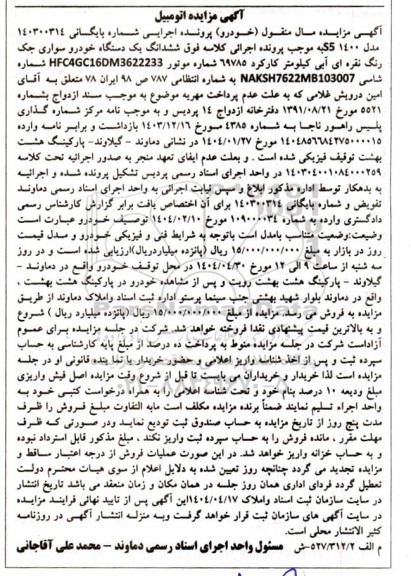 آگهی مزایده اتومبیل
آگهی مزایده مال منقول (خودرو) پرونده اجرایی شماره بایگانی ۱۴۰۳۰۰۳۱۴
مدل ۱۴۰۰ S5 به موجب پرونده اجرائی کلاسه فوق ششدانگ یک دستگاه خودرو سواری جک
رنگ نقره ای آبی کیلومتر کارکرد ۶۹۷۸۵ شماره موتور HFC4GC16DM3622233 شماره
شاسی NAKSH7622MB103007 به شماره انتظامی ۷۸۷ ص ۹۸ ایران ۷۸ متعلق به آقای
امین درویش غلامی که به علت عدم پرداخت مهریه موضوع به موجب سند ازدواج بشماره
۵۵۲۱ مورخ ۱۳۹۱/۰۸/۲۱ دفترخانه ازدواج ۱۴ پردیس و به موجب نامه مرکز شماره گذاری
پلیس راهور ناجا به شماره ۴۳۸۵ مورخ ۱۴۰۳/۱۲/۱۶ بازداشت و برابر نامه وارده
۱۴۰۴۸۵۶۶۸۴۲۷۵۰۰۰۰۱۵ مورخ ۱۴۰۴/۰۱/۲۷ در نشانی دماوند - گیلاوند- پارکینگ هشت
بهشت توقیف فیزیکی شده است . و بعلت عدم ایفای تعهد منجر به صدور اجرائیه تحت کلاسه
۱۴۰۳۰۴۰۰۱۰۸۴۰۰۰۲۵۹ در واحد اجرای اسناد رسمی پردیس تشکیل پرونده شده و اجرائیه
به بدهکار توسط اداره مذکور ابلاغ و سپس نیابت اجرائی به واحد اجرای اسناد رسمی دماوند
تفویض و شماره بایگانی ۱۴۰۳۰۰۳۱۴ برای آن اختصاص یافت برابر گزارش کارشناس رسمی
دادگستری وارده به شماره ۱۰۹۰۰۰۳۴ مورخ ۱۴۰۴/۰۲/۱۰ توصیف خودرو عبارت است
وضیعت:وضعیت متناسب بامدل است باتوجه به شرایط فنی و فیزیکی خودرو و مدل قیمت
روز در بازار به مبلغ ۱۵/۰۰۰/۰۰۰/۰۰۰ ریال (پانزده میلیاردریال)ارزیابی شده است و در روز
سه شنبه از ساعت ۹ الی ۱۲ مورخ ۱۴۰۴/۰۴/۳۰ در محل توقف خودرو واقع در دماوند -
گیلاوند - پارکینگ هشت بهشت رویت و پس از مشاهده خودرو در پارکینگ هشت بهشت ،
واقع در دماوند بلوار شهید بهشتی جنب سینما پرستو اداره ثبت اسناد واملاک دماوند از طریق
مزایده به فروش می رسد. مزایده از مبلغ ۱۵/۰۰۰/۰۰۰/۰۰۰ ریال (پانزده میلیارد ریال ) شروع
و به بالاترین قیمت پیشنهادی نقدا فروخته خواهد شد. شرکت در جلسه مزایده برای عموم
آزاداست شرکت در جلسه مزایده منوط به پرداخت ده درصد از مبلغ پایه کارشناسی به حساب
سپرده ثبت و پس از اخذ شناسه واریز اعلامی و حضور خریدار یا نماینده قانونی او در جلسه
مزایده است لذا خریدار و خریداران می بایست تا قبل از شروع وقت مزایده اصل فیش واریزی
مبلغ ودیعه ۱۰ درصد بنام خود و تحت شناسه اعلامی را به همراه درخواست کتبی خود به
واحد اجراء تسلیم نمایند ضمناً برنده مزایده مکلف است مابه التفاوت مبلغ فروش را ظرف
مدت پنج روز از تاریخ مزایده به حساب صندوق ثبت تودیع نماید ودر صورتی که ظرف
مهلت مقرر ، مانده فروش را به حساب سپرده ثبت واریز نکند ، مبلغ مذکور قابل استرداد نبوده
و به حساب خزانه واریز خواهد شد. در این صورت عملیات فروش از درجه اعتبار ساقط و
مزایده تجدید می گردد چنانچه روز تعیین شده به دلایل اعلام از سوی هیات محترم دولت
تعطیل گردد فردای اداری همان روز جلسه در همان مکان و زمان منعقد می باشد تاریخ انتشار
در سایت سازمان ثبت اسناد واملاک ۱۴۰۴/۰۴/۱۷این آگهی پس از تایید نهائی فرایند مزایده
در سایت آگهی های سازمان ثبت قرار خواهد گرفت وبه منزله انتشار آگهی در روزنامه
کثیر الانتشار محلی است.
م الف ۵۲۷/۳۱۲/۲-ش مسئول واحد اجرای اسناد رسمی دماوند - محمد علی آقاجانی